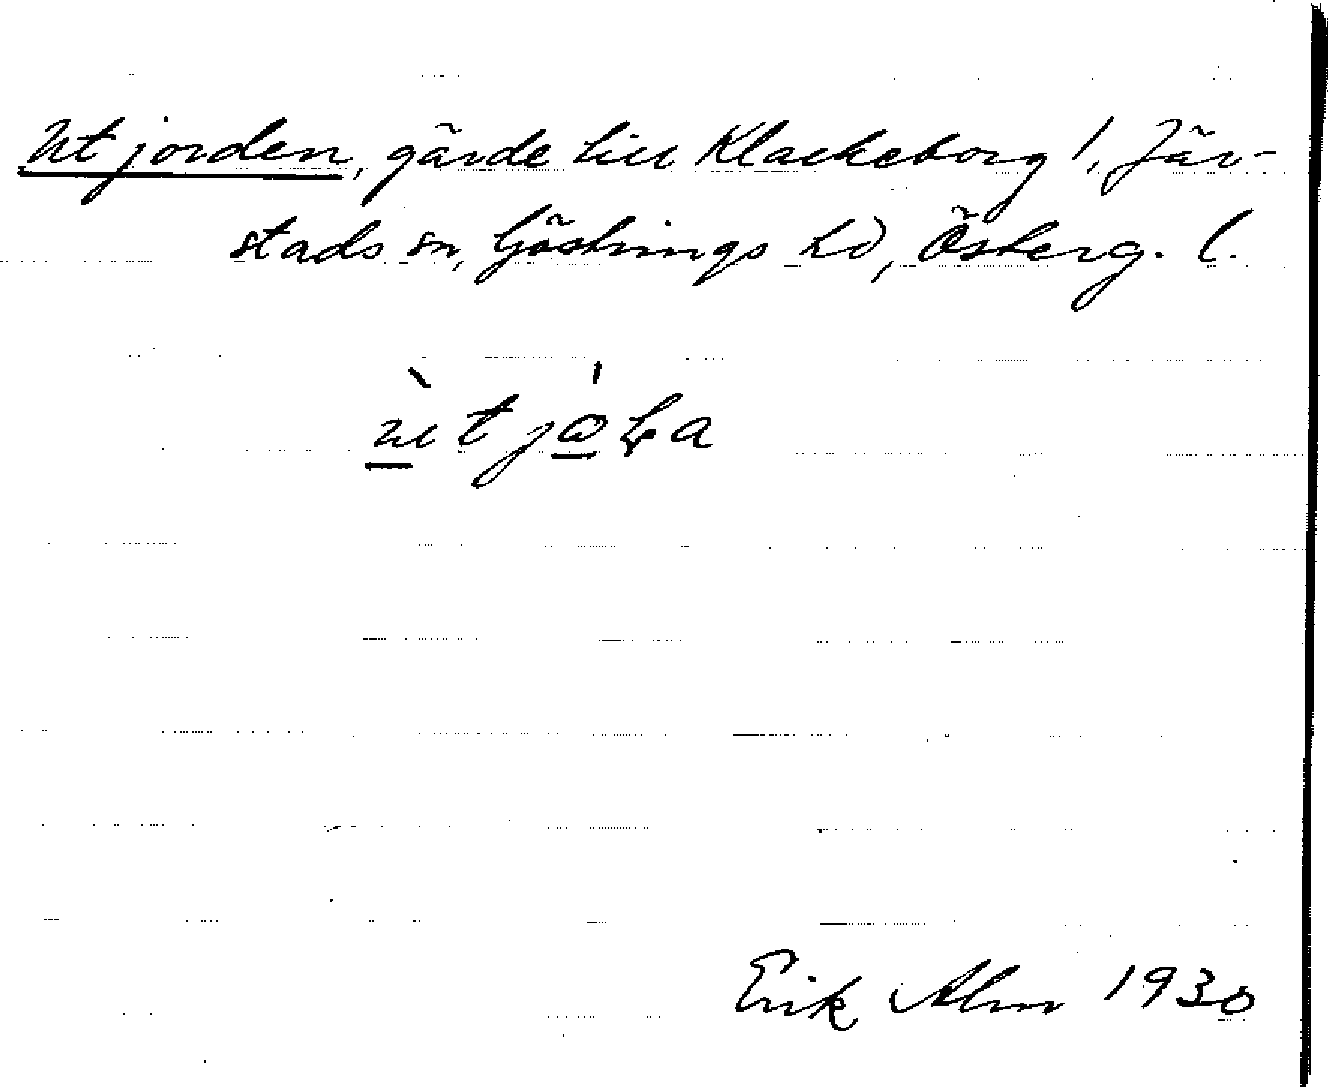 Utjorden, gärde till Klackeborg 1, Jär-
stads sn, Göstrings hd, Österg. l.
Erik Alm 1930